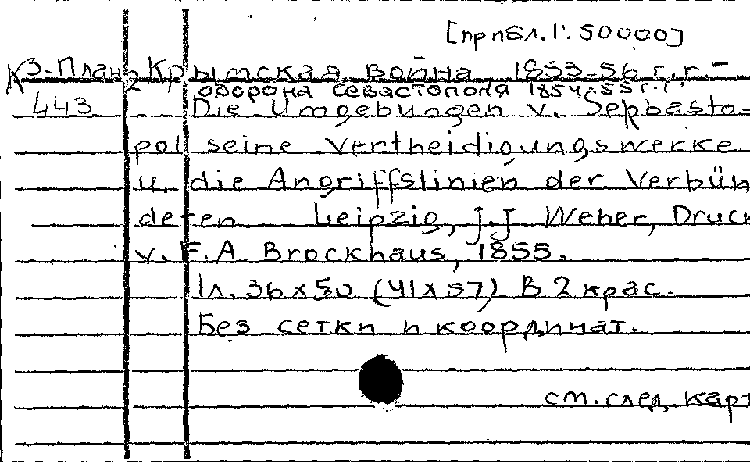 [прибл. 1:50000]
К3-План2 Крымская война 1853-56 г.г.-
оборона Севастополя 1854-55 г.г.
443 Die Umgebungen v. Sepbasto-
pol seine Vertheidigungswerke
u. die Angriffslinien der Verbün
deten Leipzig, J.J Weber, Druck
v. F.A Brockhaus, 1855.
1л. 36x50 (41x57) В 2 крас.
Без сетки и координат.
см. след. карт